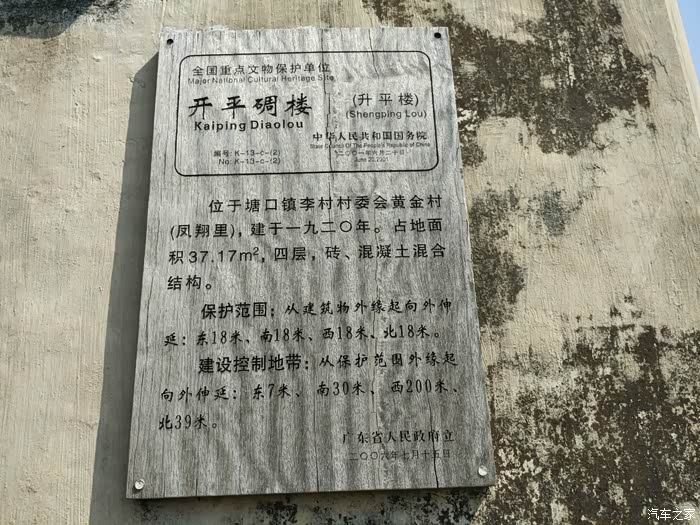 全国重点文物保护单位
Major National Cultural Heritage Site
开平碉楼 (升平楼)
Kaiping Diaolou (Shengping Lou)
中华人民共和国国务院
State Council Of The People's Republic of China
编号: K-13-c-(2) 二〇〇一年六月二十日
No: K-13-c-(2) June 20,2001
位于塘口镇李村村委会黄金村
(凤翔里), 建于一九二〇年。占地面
积37.17m², 四层, 砖、混凝土混合
结构。
保护范围: 从建筑物外缘起向外伸
延: 东18米、南18米、西18米、北18米。
建设控制地带: 从保护范围外缘起
向外伸延: 东7米、南30米、西200米、
北39米。
广东省人民政府立
二〇〇六年七月十五日
汽车之家